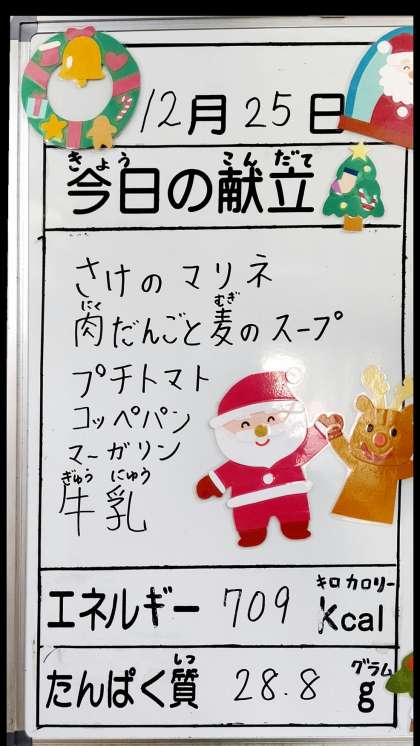 12月25日
きょう こんだて
今日の献立
さけのマリネ
にく むぎ
肉だんごと麦のスープ
プチトマト
コッペパン
マーガリン
ぎゅう にゅう
牛乳
キロカロリー
エネルギー 709 kcal
しつ グラム
たんぱく質 28.8 g